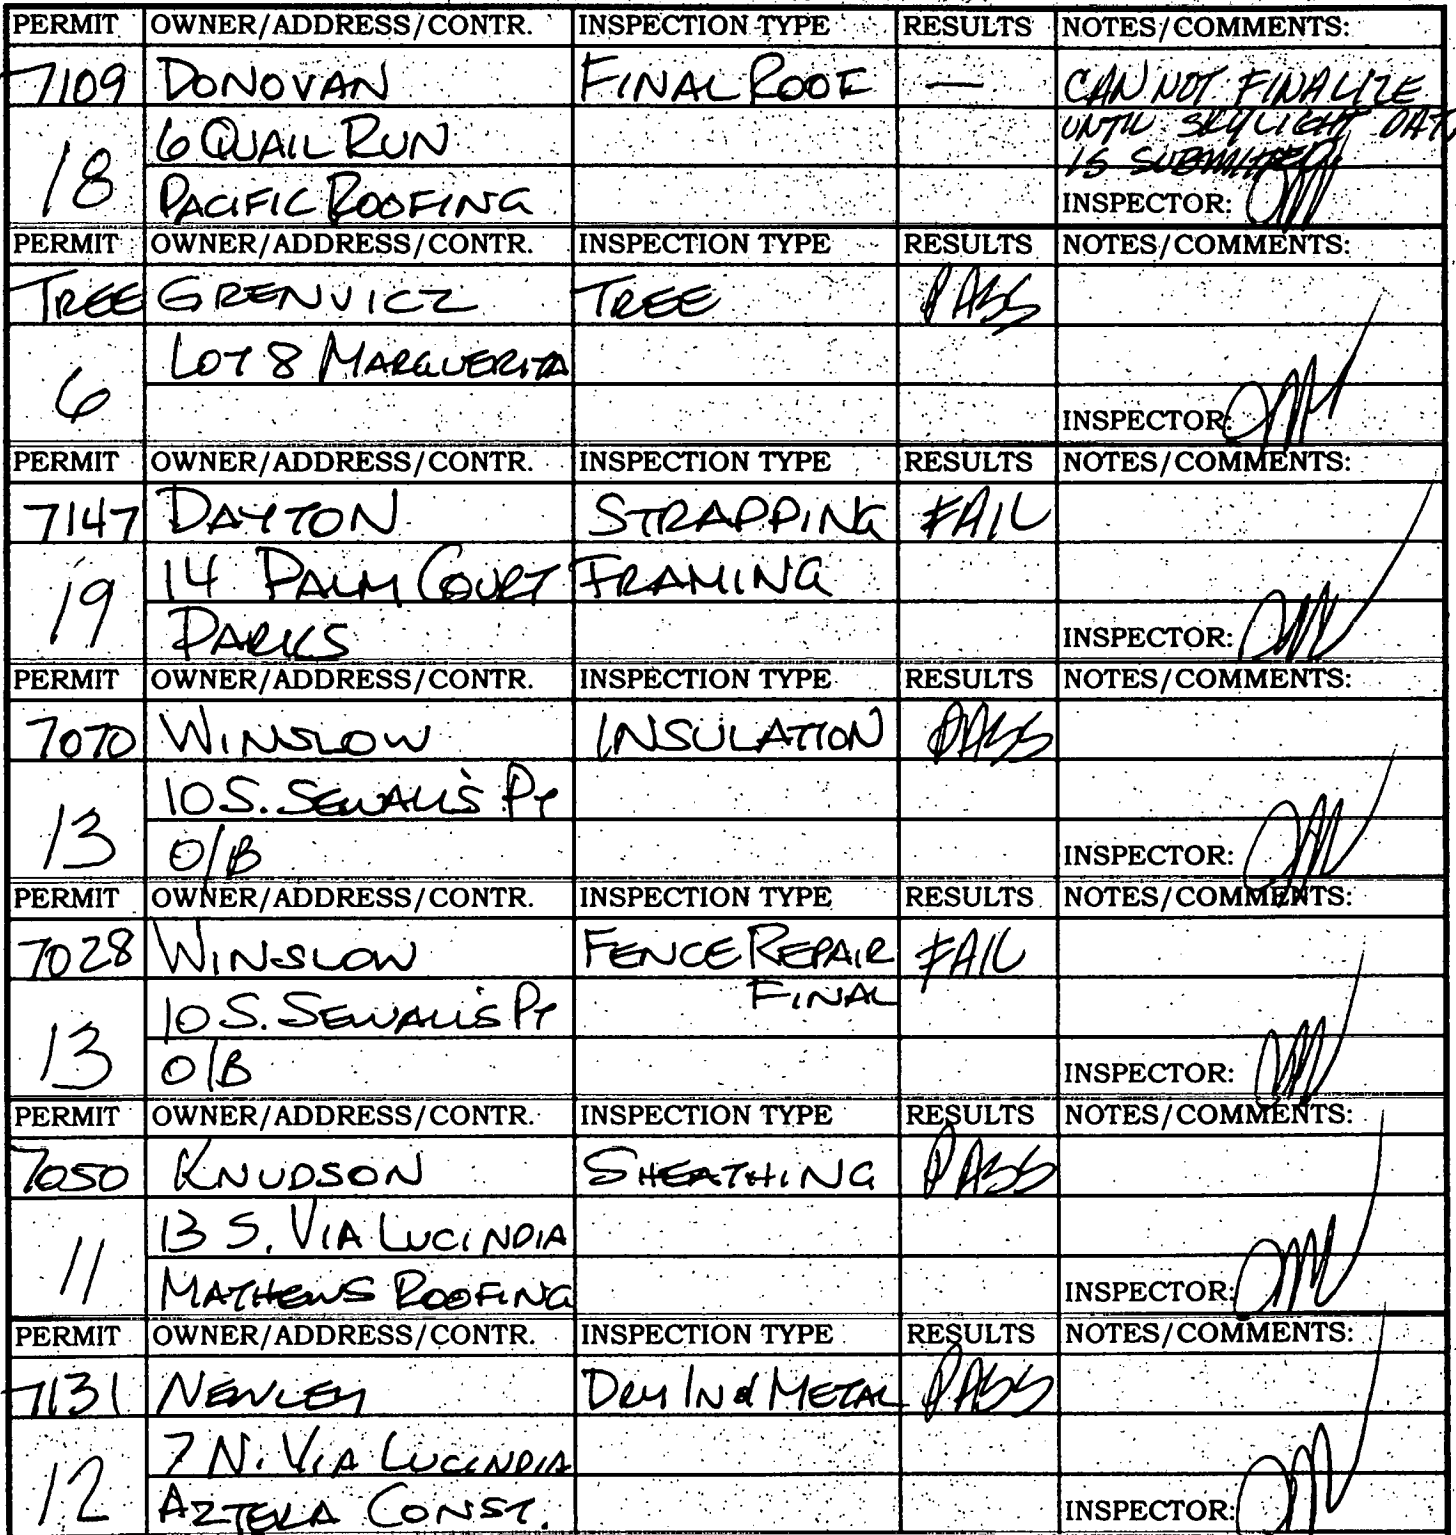 PERMIT OWNER/ADDRESS/CONTR. INSPECTION TYPE RESULTS NOTES/COMMENTS:
7109 DONOVAN FINAL ROOF — CAN NOT FINALIZE
6 QUAIL RUN UNTIL SKYLIGHT DATA
18 IS SUBMITTED
PACIFIC ROOFING INSPECTOR:
PERMIT OWNER/ADDRESS/CONTR. INSPECTION TYPE RESULTS NOTES/COMMENTS:
TREE GRENVICZ TREE PASS
LOT 8 MARGUERITA
6 INSPECTOR:
PERMIT OWNER/ADDRESS/CONTR. INSPECTION TYPE RESULTS NOTES/COMMENTS:
7147 DAYTON STRAPPING FAIL
14 PALM COURT FRAMING
19 PARKS INSPECTOR:
PERMIT OWNER/ADDRESS/CONTR. INSPECTION TYPE RESULTS NOTES/COMMENTS:
7070 WINSLOW INSULATION PASS
10 S. SEWALL'S PT
13 O/B INSPECTOR:
PERMIT OWNER/ADDRESS/CONTR. INSPECTION TYPE RESULTS NOTES/COMMENTS:
7028 WINSLOW FENCE REPAIR FAIL
10 S. SEWALL'S PT FINAL
13 O/B INSPECTOR:
PERMIT OWNER/ADDRESS/CONTR. INSPECTION TYPE RESULTS NOTES/COMMENTS:
7050 KNUDSON SHEATHING PASS
13 S. VIA LUCINDIA
11 MATHEWS ROOFING INSPECTOR:
PERMIT OWNER/ADDRESS/CONTR. INSPECTION TYPE RESULTS NOTES/COMMENTS:
7131 NEWLEY DRY IN & METAL PASS
7 N. VIA LUCINDIA
12 AZTEKA CONST. INSPECTOR: